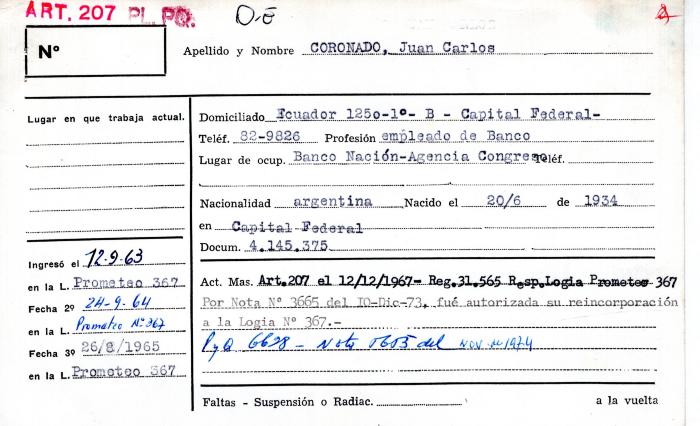 ART. 207 PL. PQ. O-E
Nº
Apellido y Nombre CORONADO, Juan Carlos
Lugar en que trabaja actual.
Domiciliado Ecuador 1250-1º- B - Capital Federal-
Teléf. 82-9826 Profesión empleado de Banco
Lugar de ocup. Banco Nación-Agencia Congreso Teléf.
Nacionalidad argentina Nacido el 20/6 de 1934
en Capital Federal
Docum. 4.145.375
Ingresó el 12-9-63
en la L. Prometeo 367
Fecha 2º 24-9-64
en la L. Prometeo Nº 367
Fecha 3º 26/8/1965
en la L. Prometeo 367
Act. Mas. Art.207 el 12/12/1967- Reg.31.565 Resp.Logia Prometeo 367
Por Nota Nº 3665 del IO-Dic-73, fué autorizada su reincorporación
a la Logia Nº 367.-
PyQ 6628 - Nota 0605 del Nov. de 1974
Faltas - Suspensión o Radiac.
a la vuelta